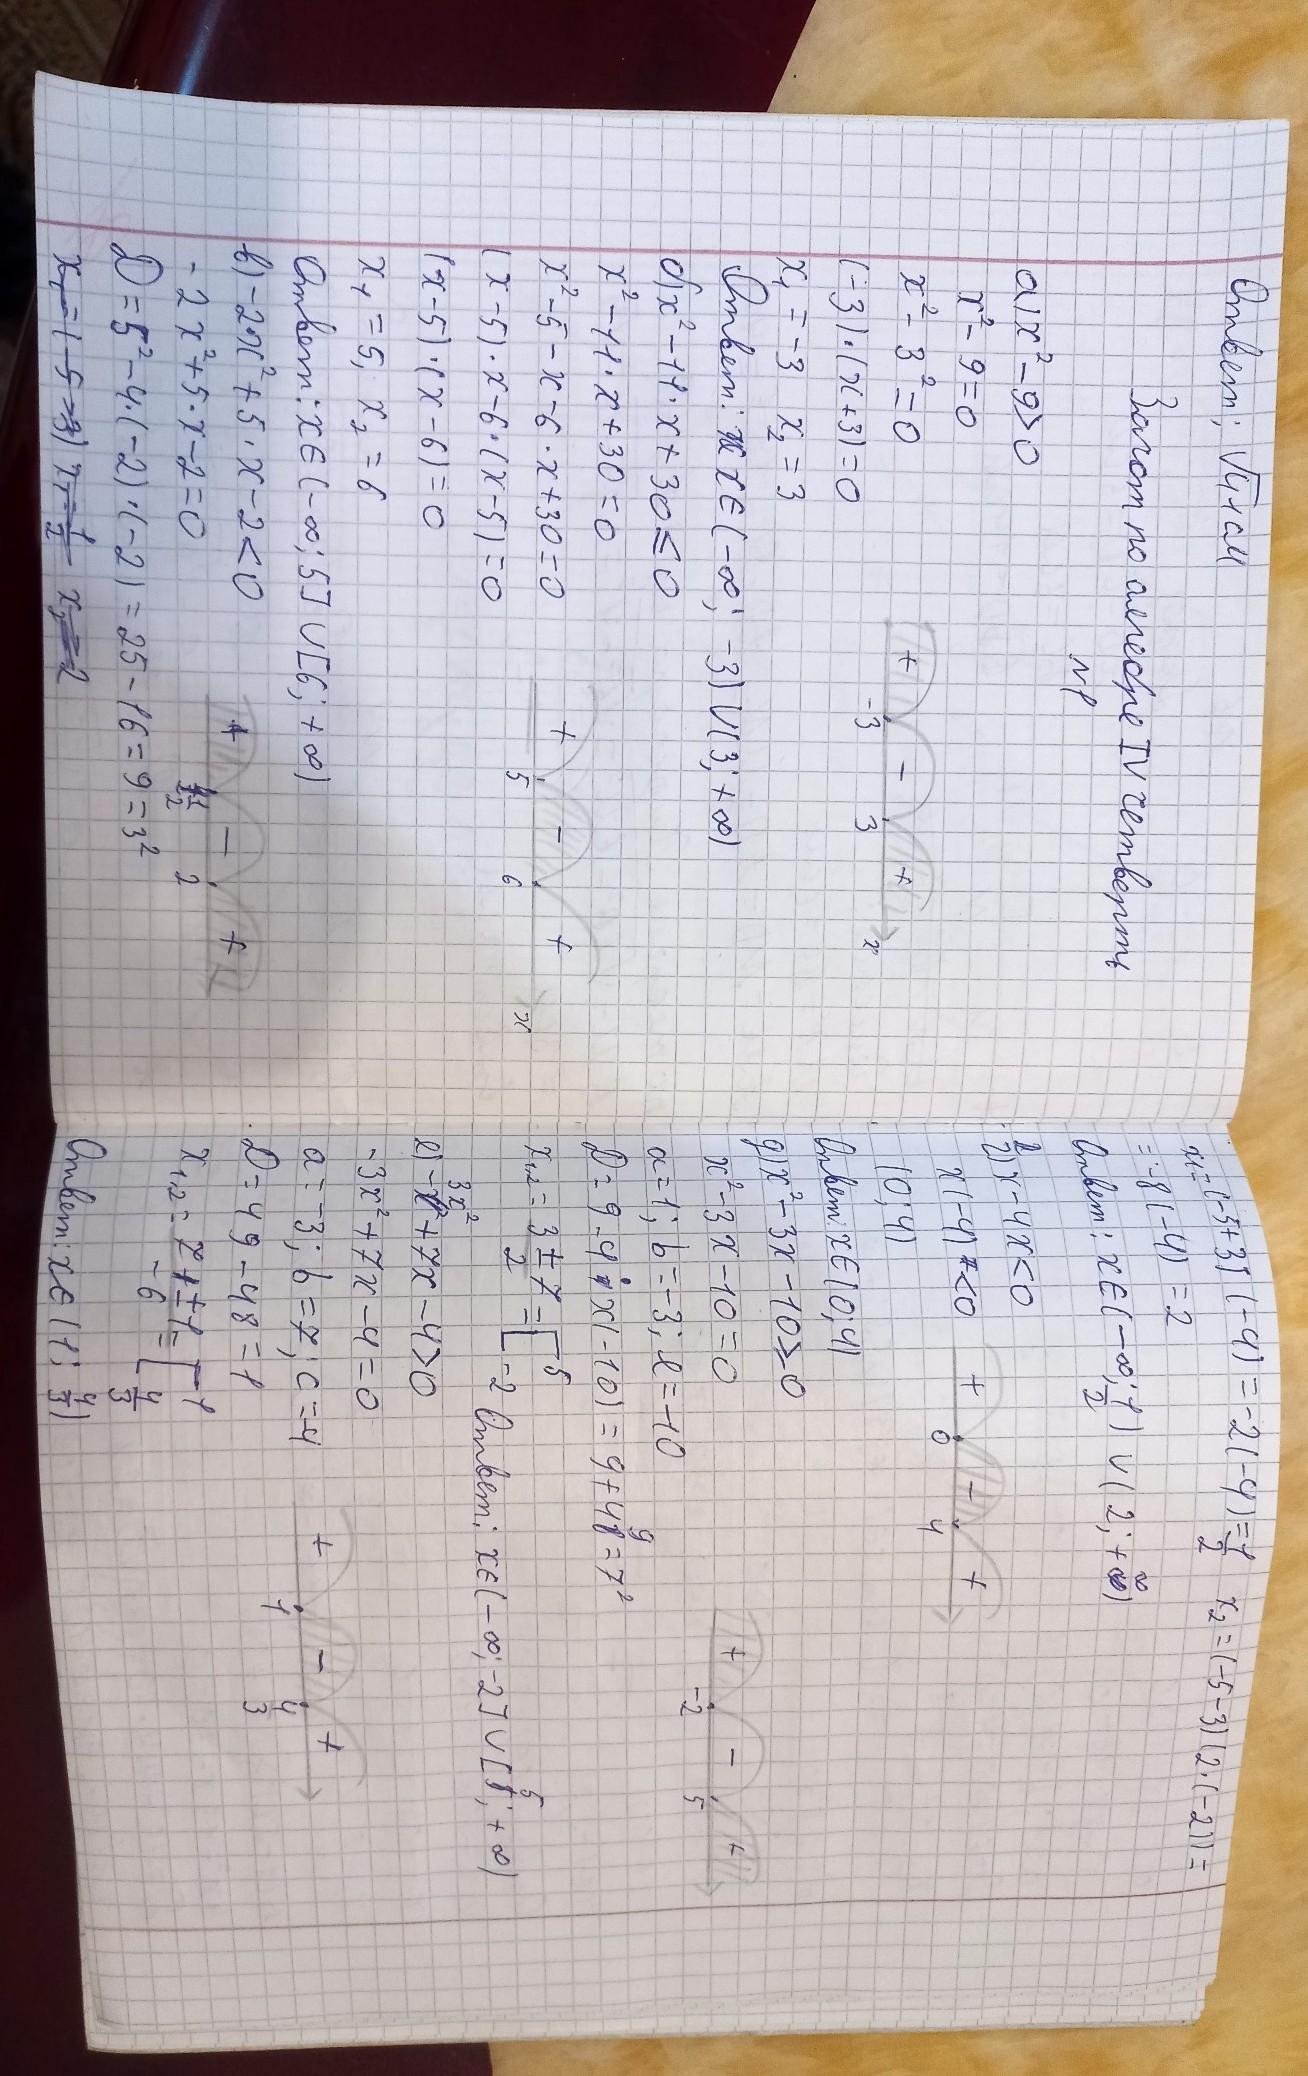 Ответ: √41 см
Зачот по алгебре IV четверть
N1
а) x² - 9 > 0
x² - 9 = 0
x² - 3² = 0
(-3)·(x+3) = 0
x₁ = -3 x₂ = 3
+ - +
-3 3 x
Ответ: x ∈ (-∞; -3) ∪ (3; +∞)
б) x² - 11·x + 30 ≤ 0
x² - 11·x + 30 = 0
x² - 5 - x - 6·x + 30 = 0
(x-5)·x - 6·(x-5) = 0
(x-5)·(x-6) = 0
x₁ = 5; x₂ = 6
+ - +
5 6 x
Ответ: x ∈ (-∞; 5] ∪ [6; +∞)
в) -2·x² + 5·x - 2 < 0
-2x² + 5·x - 2 = 0
+ - +
1/2 2
D = 5² - 4·(-2)·(-2) = 25 - 16 = 9 = 3²
x₁ = (-5+3) (-4) = -2(-4) = 1/2 x₂ = (-5-3)(2·(-2)) =
= -8(-4) = 2
Ответ: x ∈ (-∞; 1/2) ∪ (2; +∞)
г) x² - 4x < 0
x(-4) < 0
(0; 4)
+ - +
0 4
Ответ: x ∈ (0; 4)
g) x² - 3x - 10 ≥ 0
x² - 3x - 10 = 0
a = 1; b = -3; c = -10
D = 9 - 4·x(-10) = 9 + 49 = 7²
x₁,₂ = 3±7/2 = [5 -2
+ - +
-2 5
Ответ: x ∈ (-∞; -2] ∪ [5; +∞)
е) -3x² + 7x - 4 > 0
-3x² + 7x - 4 = 0
a = -3; b = 7; c = -4
D = 49 - 48 = 1
x₁,₂ = 7±1/-6 = [1 4/3
+ - +
1 4/3
Ответ: x ∈ (1; 4/3)